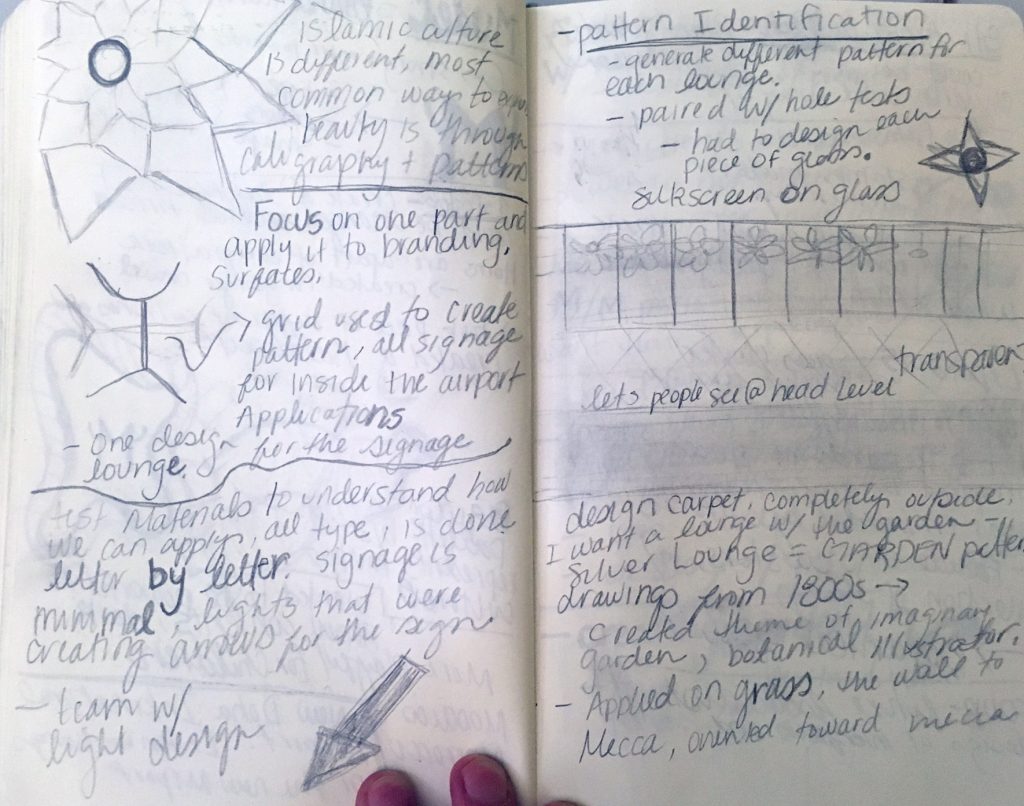 islamic culture
is different, most
common way to
beauty is through
caligraphy + patterns
Focus on one part and
apply it to branding.
Surfaces.
grid used to create
pattern, all signage
for inside the airport
Applications
- one design for the signage
lounge.
test materials to understand how
we can apply, all type, is done
letter by letter. signage is
minimal, lights that were
creating arrows for the sign
- team w/
light design
- pattern Identification
- generate different pattern for
each lounge.
- paired w/ hole tests
- had to design each
piece of glass.
silkscreen on glass
transparent
lets people see @ head level
design carpet, completely outside.
I want a lounge w/ the garden -
Silver Lounge = GARDEN pattern
drawings from 1800s →
created theme of imaginary
garden, botanical illustrator.
- Applied on grass, the wall to
Mecca, oriented toward mecca